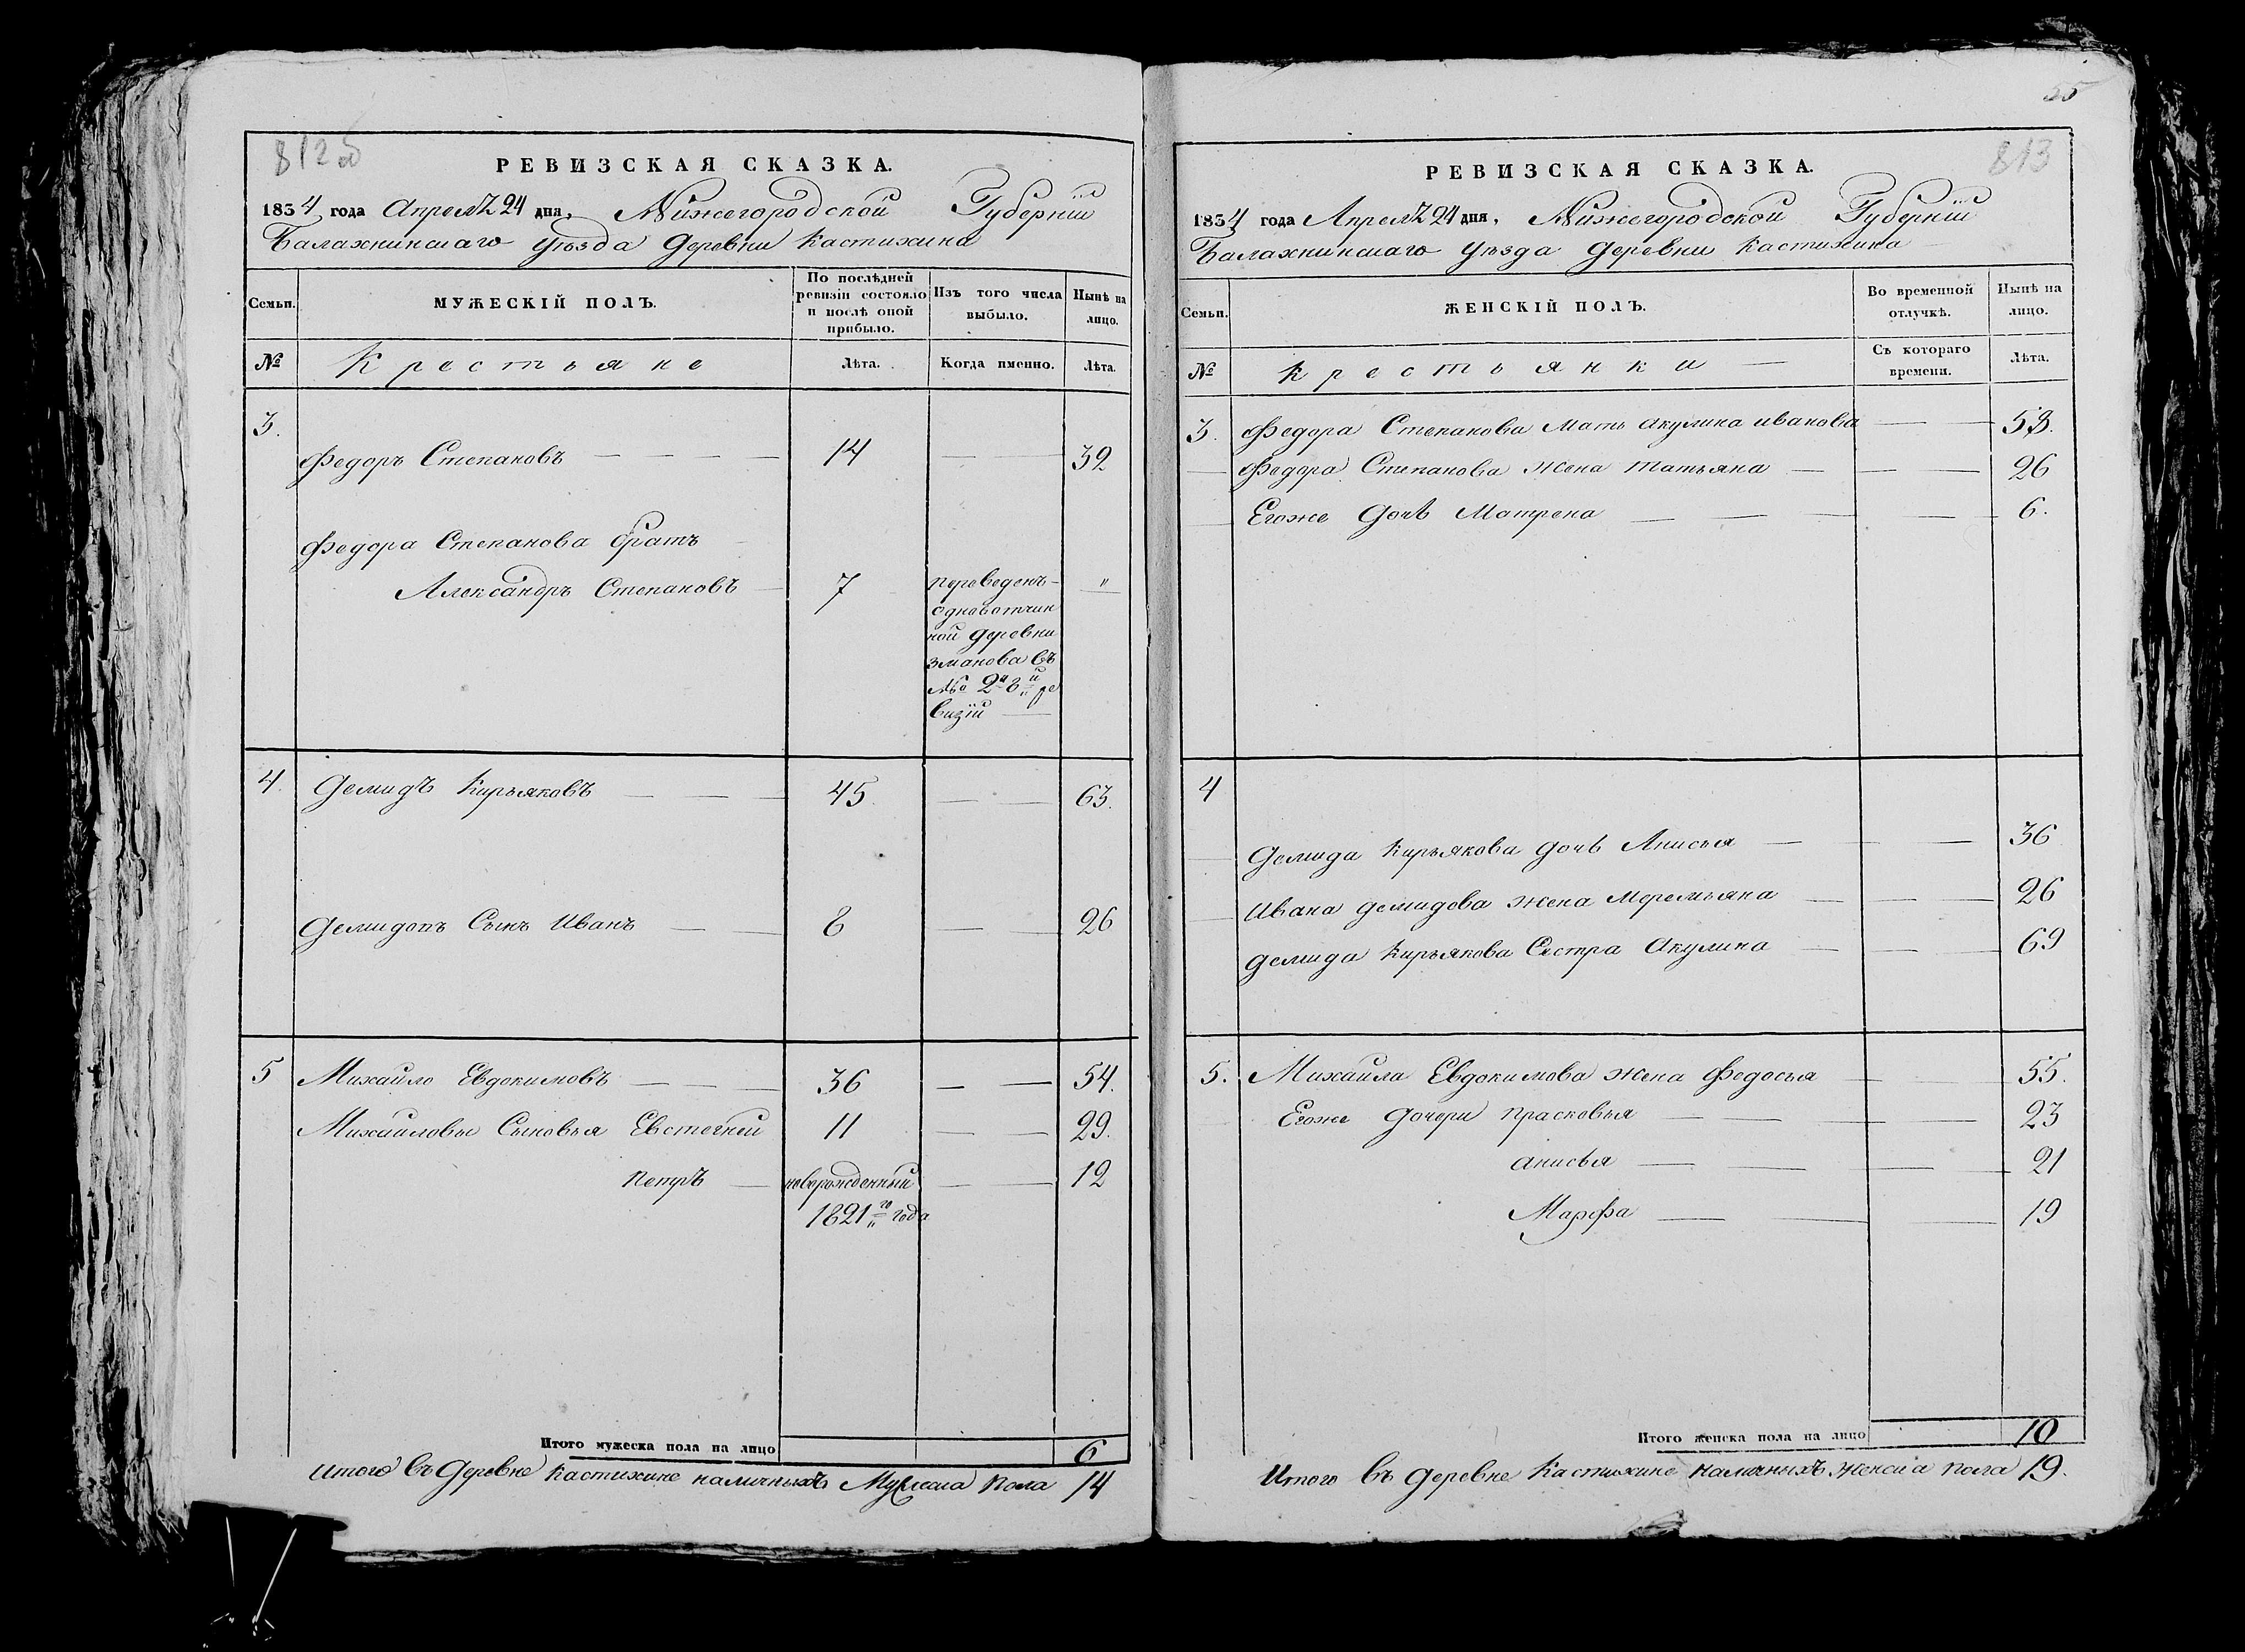 812 об
РЕВИЗСКАЯ СКАЗКА.
1834 года Апреля 24 дня, Нижегородской Губернiи
Балахнинскаго уѣзда деревни Кастихина
Семьи.
МУЖЕСКIЙ ПОЛЪ.
По послѣдней
ревизiи состояло
и послѣ оной
прибыло.
Изъ того числа
выбыло.
Нынѣ на
лицо.
№
Крестьяне
Лѣта.
Когда именно.
Лѣта.
3.
Федоръ Степановъ 14 32
Федора Степанова братъ
Александръ Степановъ 7 "
переведенъ
одновотчин
ной деревни
въ
№ 8й ре
визiи
4. Демидъ Кирьяковъ 45 63.
Демидовъ Сынъ Иванъ 8 26
5 Михайло Евдокимовъ 36 54.
Михайловы Сыновья Евстегней 11 29.
Петръ новорожденный 12
1821го года
Итого мужеска пола на лицо 6
Итого въ деревне Кастихине наличныхъ Мужеска пола 14
55
813
РЕВИЗСКАЯ СКАЗКА.
1834 года Апреля 24 дня, Нижегородской Губернiи
Балахнинскаго уѣзда деревни Кастихина
Семьи.
ЖЕНСКIЙ ПОЛЪ.
Во временной
отлучкѣ.
Нынѣ на
лицо.
№
Крестьянки
Съ котораго
времени.
Лѣта.
3. Федора Степанова Мать Акулина иванова 58.
Федора Степанова жена татьяна 26
Егоже дочь Матрена 6.
4
Демида Кирьякова дочь Анисья 36
Ивана демидова жена Меремьяна 26
демида Кирьякова Сестра Акулина 69
5. Михайла Евдокимова жена Федосья 55.
Егоже дочери прасковья 23
анисья 21
Марфа 19
Итого женска пола на лицо 10
Итого въ деревне Кастихине наличныхъ женска пола 19.